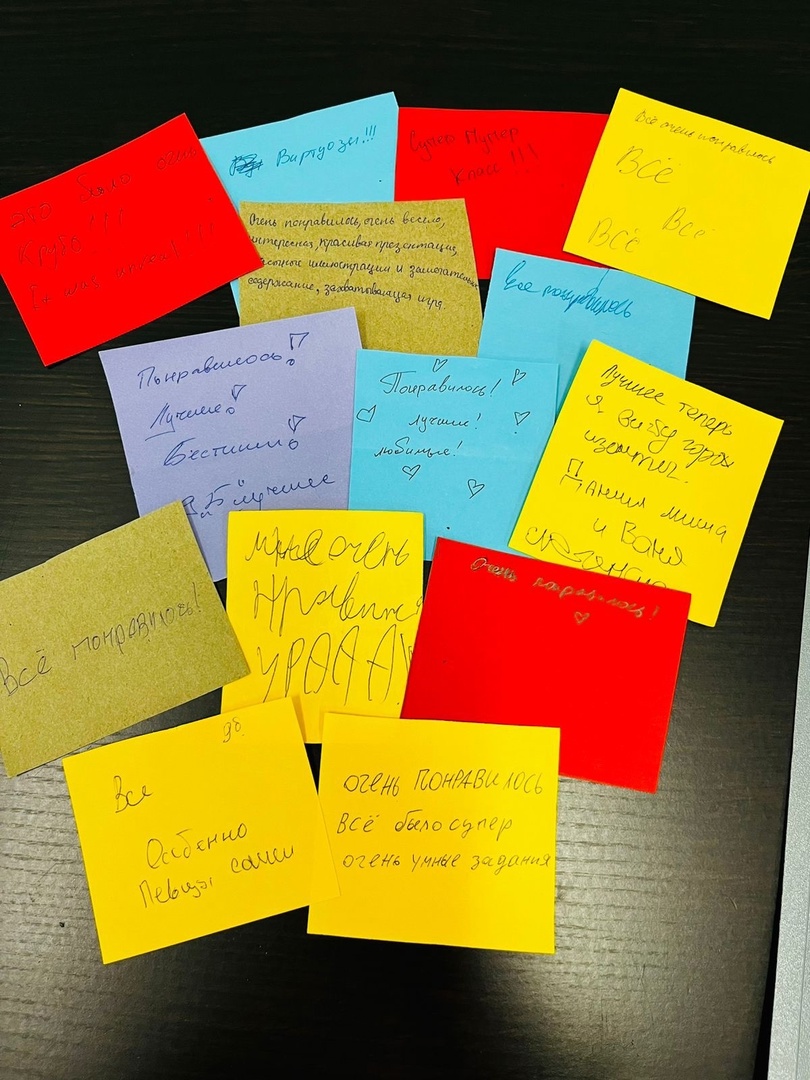 это было очень
круто!!!
It was
Виртуозы!!!
Супер Пупер
Класс!!!
Всё очень понравилось
Всё
Всё
Всё
Очень понравилось, очень весело,
интересная, красивая презентация,
иллюстрации и замечательное
содержание, захватывающая игра.
Все понравилось
Понравилось!
Лучшие!
Бестишш!
лучшие
Понравилось!
лучшие!
любимые!
Лучшее теперь
я вижу город
Данил миша
и Ваня
Всё понравилось!
мне очень
Нравится
УРАААА
Очень понравилось!
9б
Все
Особенно
Певцы сами
очень понравилось
всё было супер
очень умные задания